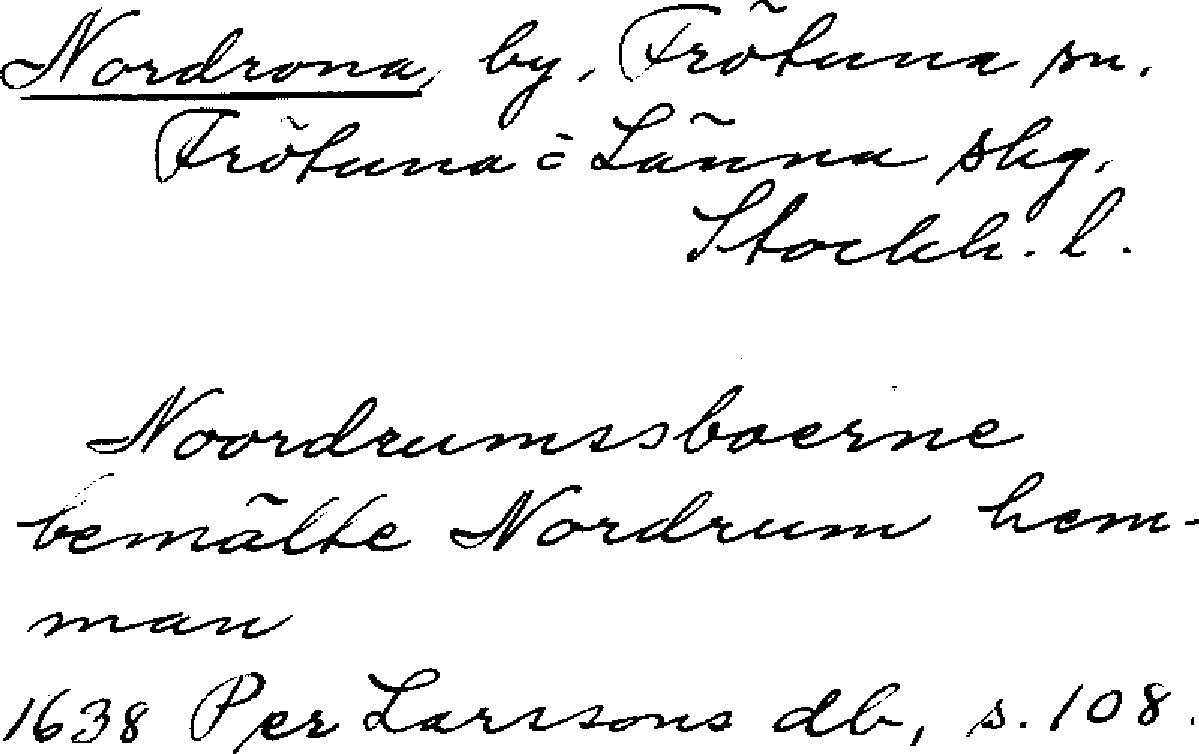 Nordrona, by, Frötuna sn.
Frötuna o Länna skg.
Stockh. l.
Noordrumssboerne
bemälte Nordrum hem-
man
1638 Per Larssons db, s. 108.